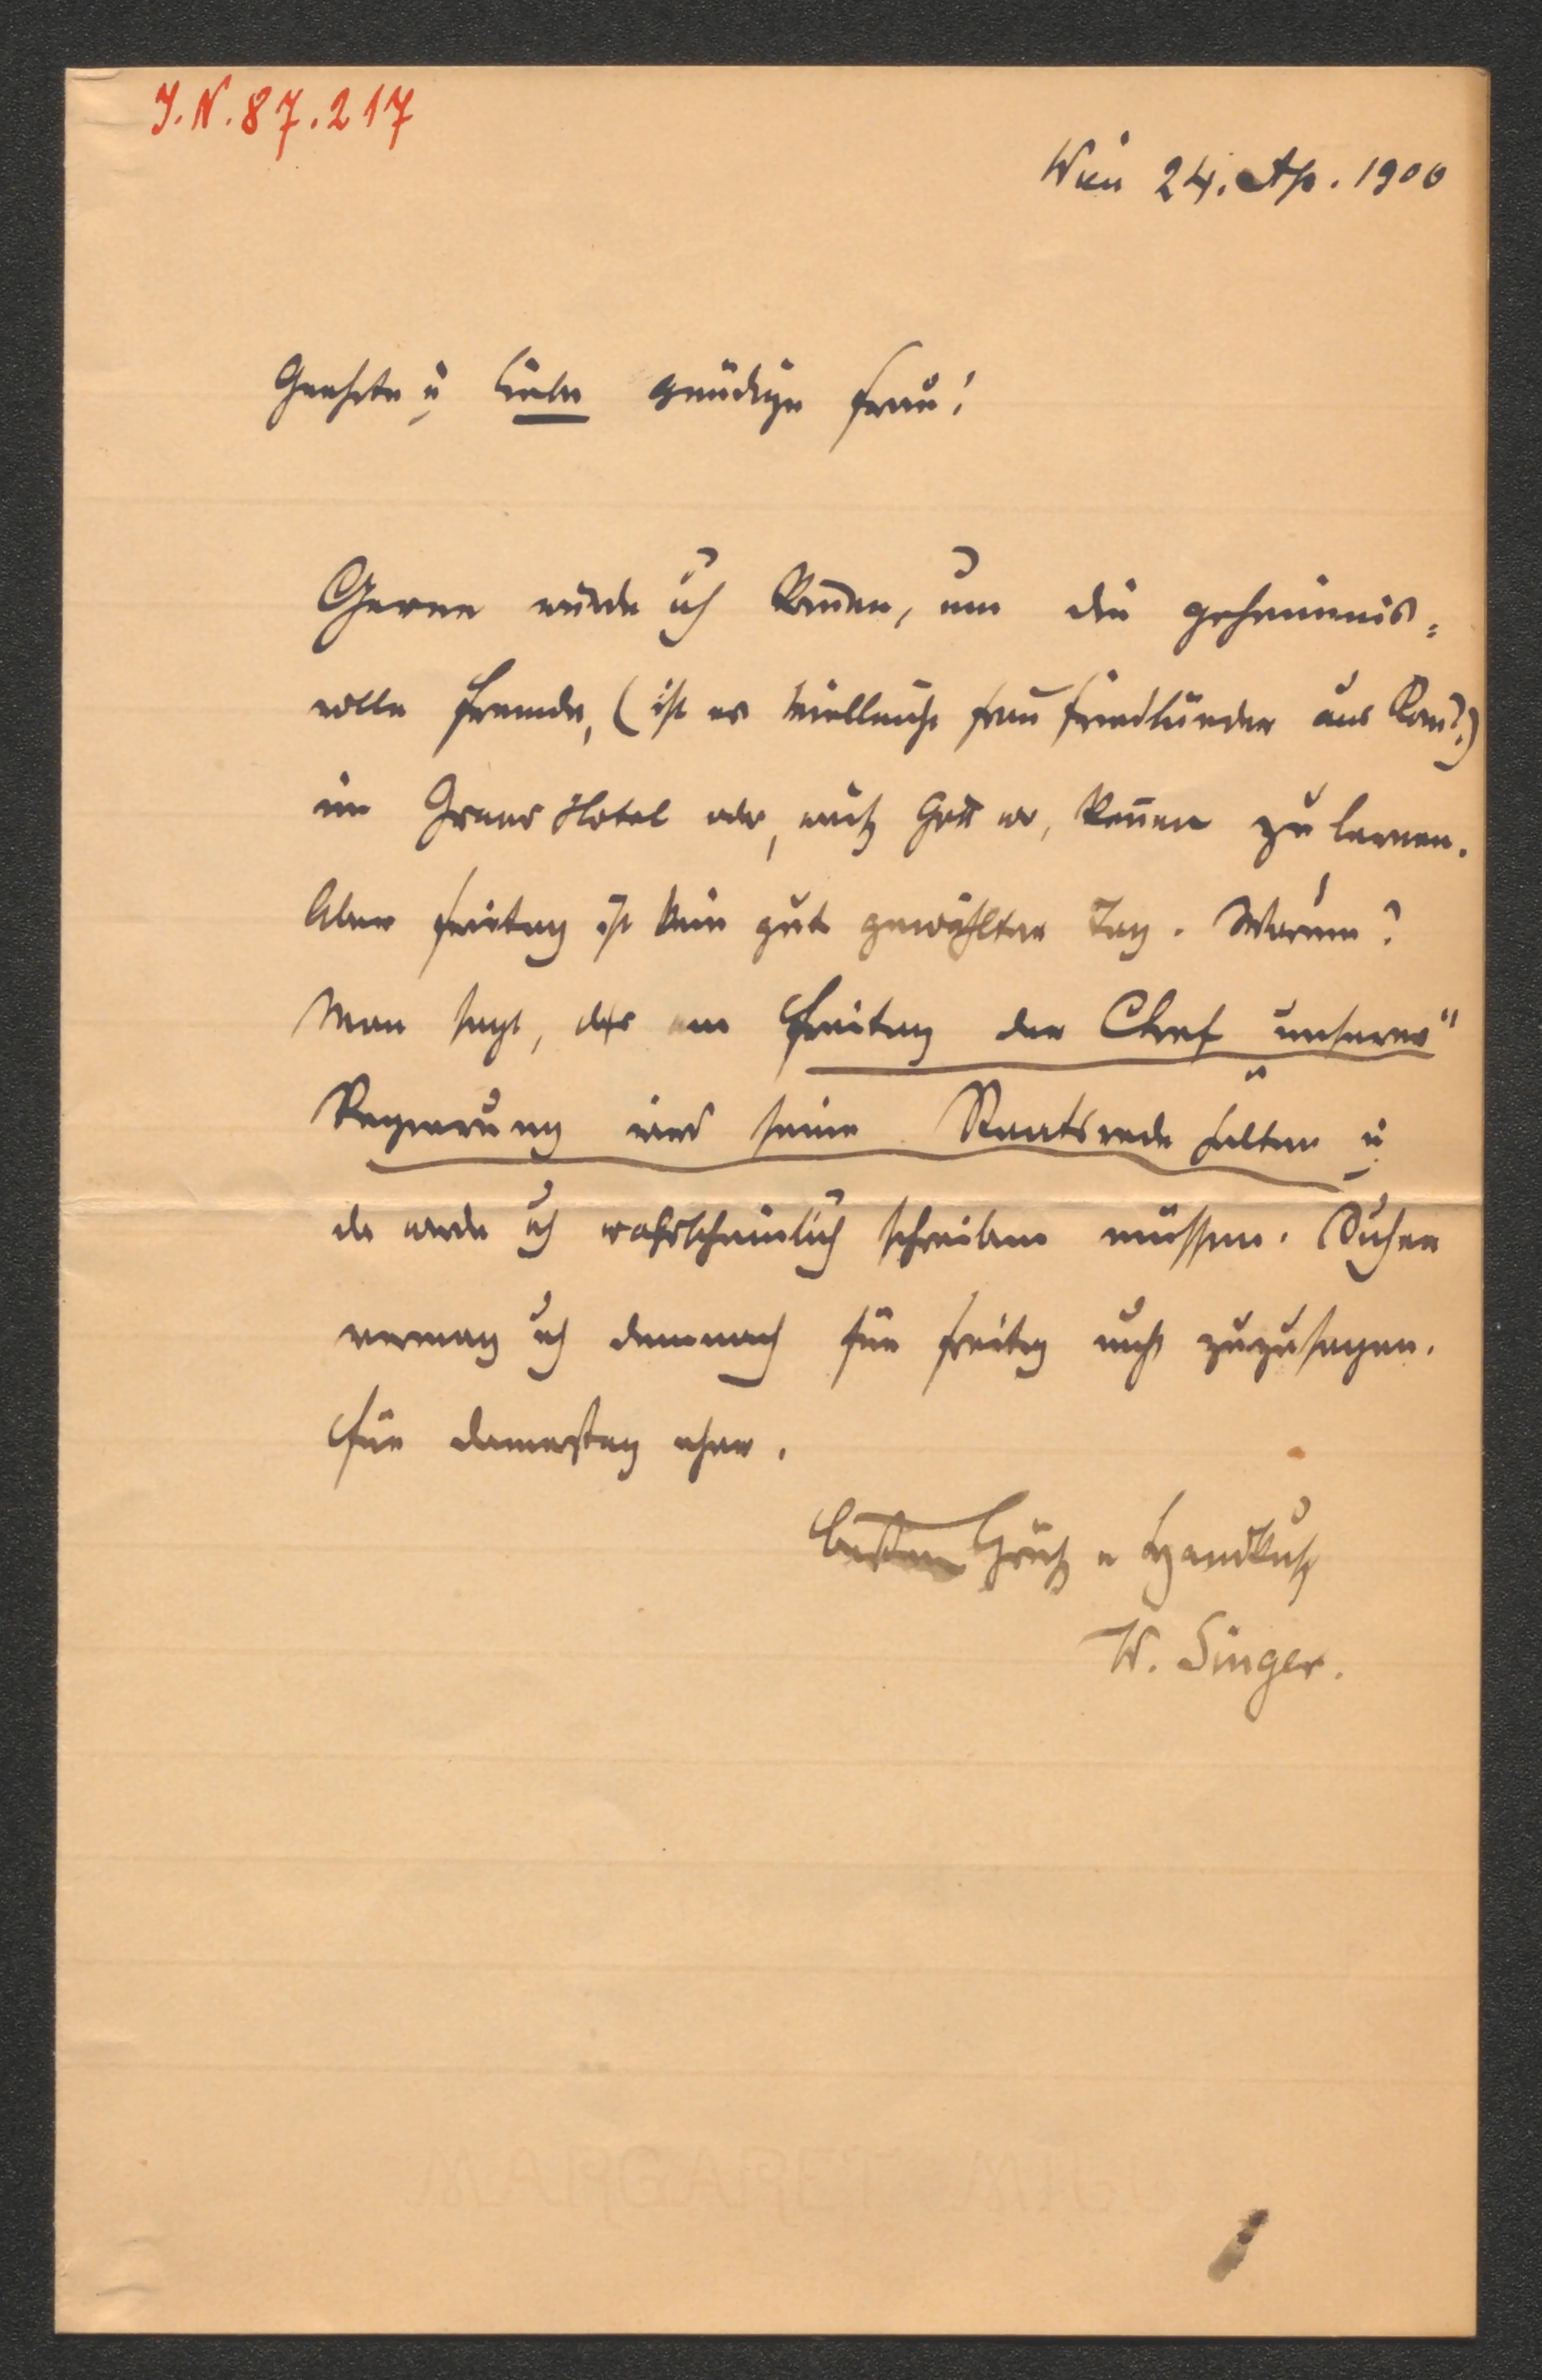 J.N. 87.217
Wien 24. Ap. 1900
Geehrte u liebe gnädige Frau!
Gerne würde ich kommen, um die geheimnis=
volle Fremde, (ist es vielleicht Frau Friedländer aus Rom?)
im Grand Hotel oder, weiß Gott wo, kennen zu lernen.
Aber Freitag ist kein gut gewählter Tag. Warum?
Man sagt, daß am Freitag der Chef „unserer"
Regierung wird seine Staatsrede halten u
da werde ich wahrscheinlich schreiben müssen. Sicher
vermag ich demnach für Freitag nicht zuzusagen.
Für Donnerstag eher.
Besten Gruß u Handkuß
W. Singer.